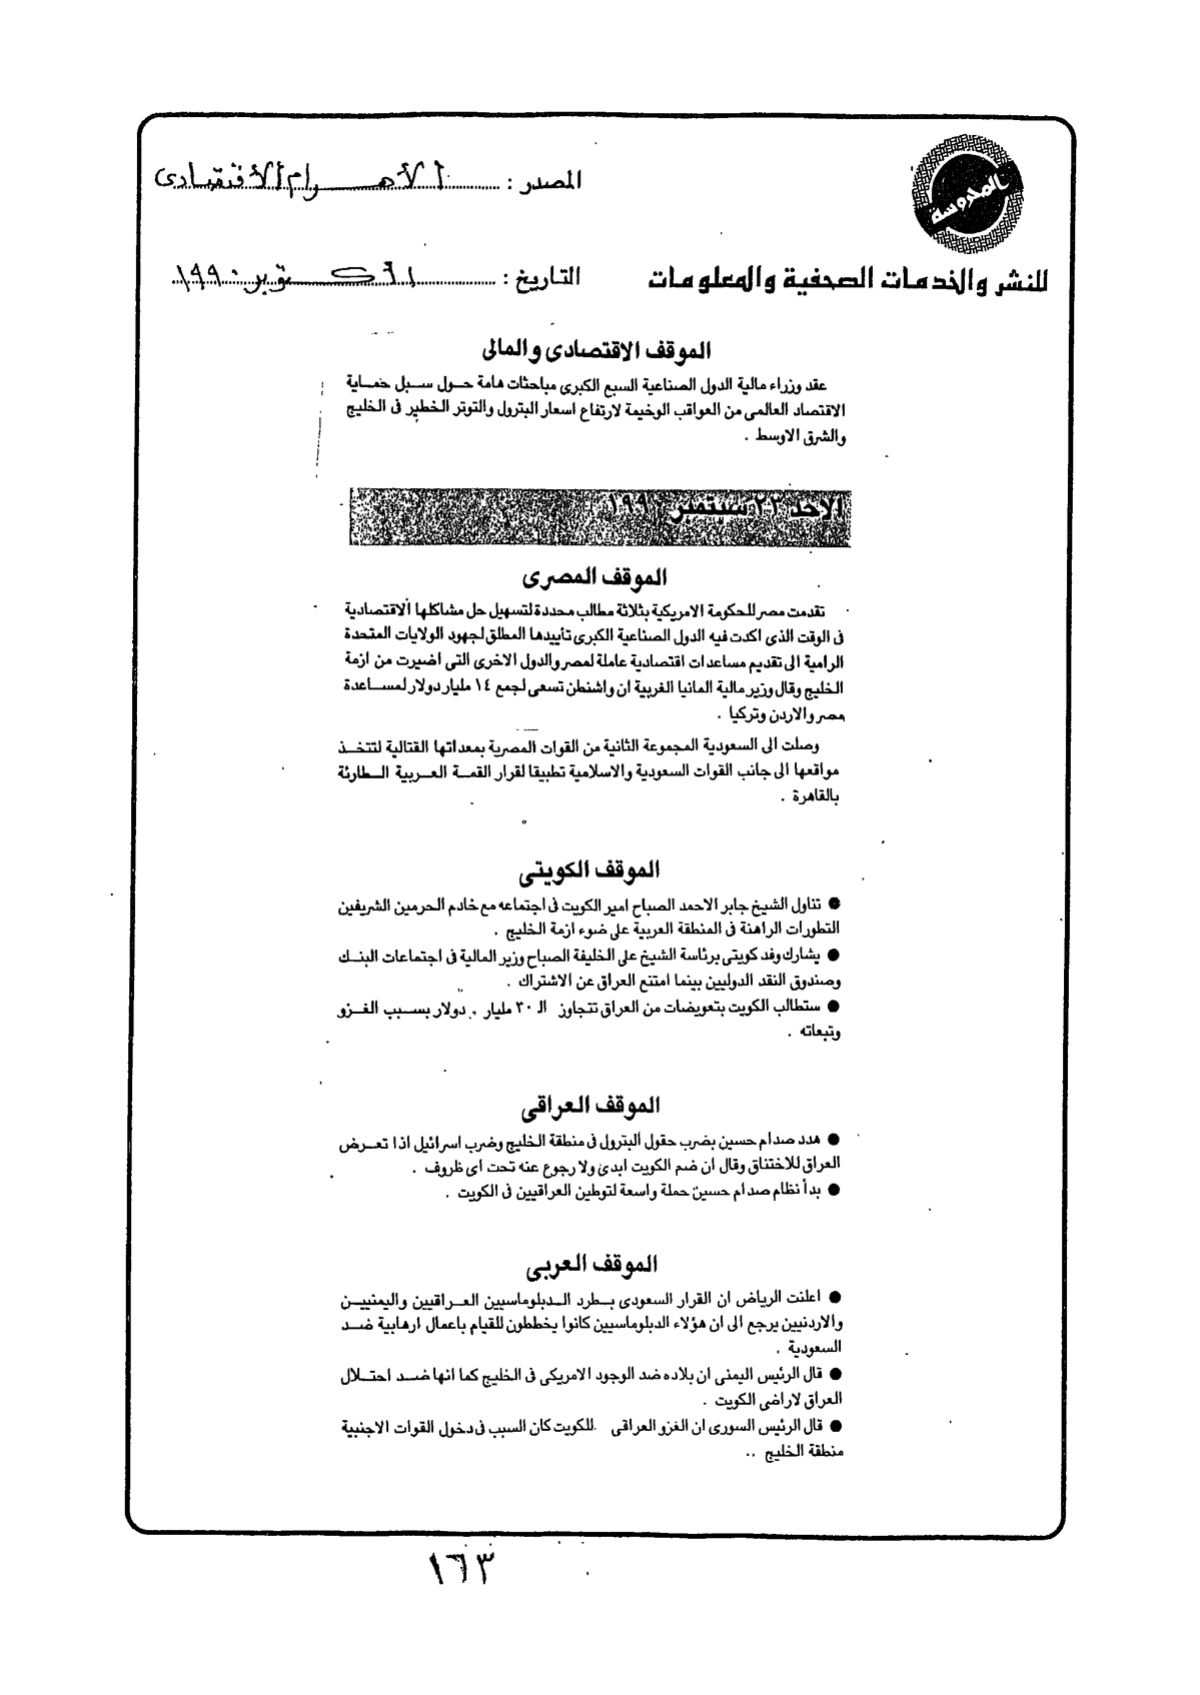 المحروسة
المصدر : الأهرام الأقتصادى
للنشر والخدمات الصحفية والمعلومات
التاريخ : ١ أكتوبر ١٩٩٠
الموقف الاقتصادى والمالى
عقد وزراء مالية الدول الصناعية السبع الكبرى مباحثات هامة حول سبل حماية
الاقتصاد العالمى من العواقب الوخيمة لارتفاع اسعار البترول والتوتر الخطير فى الخليج
والشرق الاوسط .
الاحد ٢٣ سبتمبر ١٩٩٠
الموقف المصرى
تقدمت مصر للحكومة الامريكية بثلاثة مطالب محددة لتسهيل حل مشاكلها الاقتصادية
فى الوقت الذى اكدت فيه الدول الصناعية الكبرى تأييدها المطلق لجهود الولايات المتحدة
الرامية الى تقديم مساعدات اقتصادية عاملة لمصر والدول الاخرى التى اضيرت من ازمة
الخليج وقال وزير مالية المانيا الغربية ان واشنطن تسعى لجمع ١٤ مليار دولار لمساعدة
مصر والاردن وتركيا .
وصلت الى السعودية المجموعة الثانية من القوات المصرية بمعداتها القتالية لتتخذ
مواقعها الى جانب القوات السعودية والاسلامية تطبيقا لقرار القمة العربية الطارئة
بالقاهرة .
الموقف الكويتى
● تناول الشيخ جابر الاحمد الصباح امير الكويت فى اجتماعه مع خادم الحرمين الشريفين
التطورات الراهنة فى المنطقة العربية على ضوء ازمة الخليج .
● يشارك وفد كويتى برئاسة الشيخ على الخليفة الصباح وزير المالية فى اجتماعات البنك
وصندوق النقد الدوليين بينما امتنع العراق عن الاشتراك .
● ستطالب الكويت بتعويضات من العراق تتجاوز الـ ٣٠ مليار دولار بسبب الغزو
وتبعاته .
الموقف العراقى
● هدد صدام حسين بضرب حقول البترول فى منطقة الخليج وضرب اسرائيل اذا تعرض
العراق للاختناق وقال ان ضم الكويت ابدى ولا رجوع عنه تحت اى ظروف .
● بدأ نظام صدام حسين حملة واسعة لتوطين العراقيين فى الكويت .
الموقف العربى
● اعلنت الرياض ان القرار السعودى بطرد الدبلوماسيين العراقيين واليمنيين
والاردنيين يرجع الى ان هؤلاء الدبلوماسيين كانوا يخططون للقيام باعمال ارهابية ضد
السعودية .
● قال الرئيس اليمنى ان بلاده ضد الوجود الامريكى فى الخليج كما انها ضد احتلال
العراق لاراضى الكويت .
● قال الرئيس السورى ان الغزو العراقى للكويت كان السبب فى دخول القوات الاجنبية
منطقة الخليج ..
١٦٣